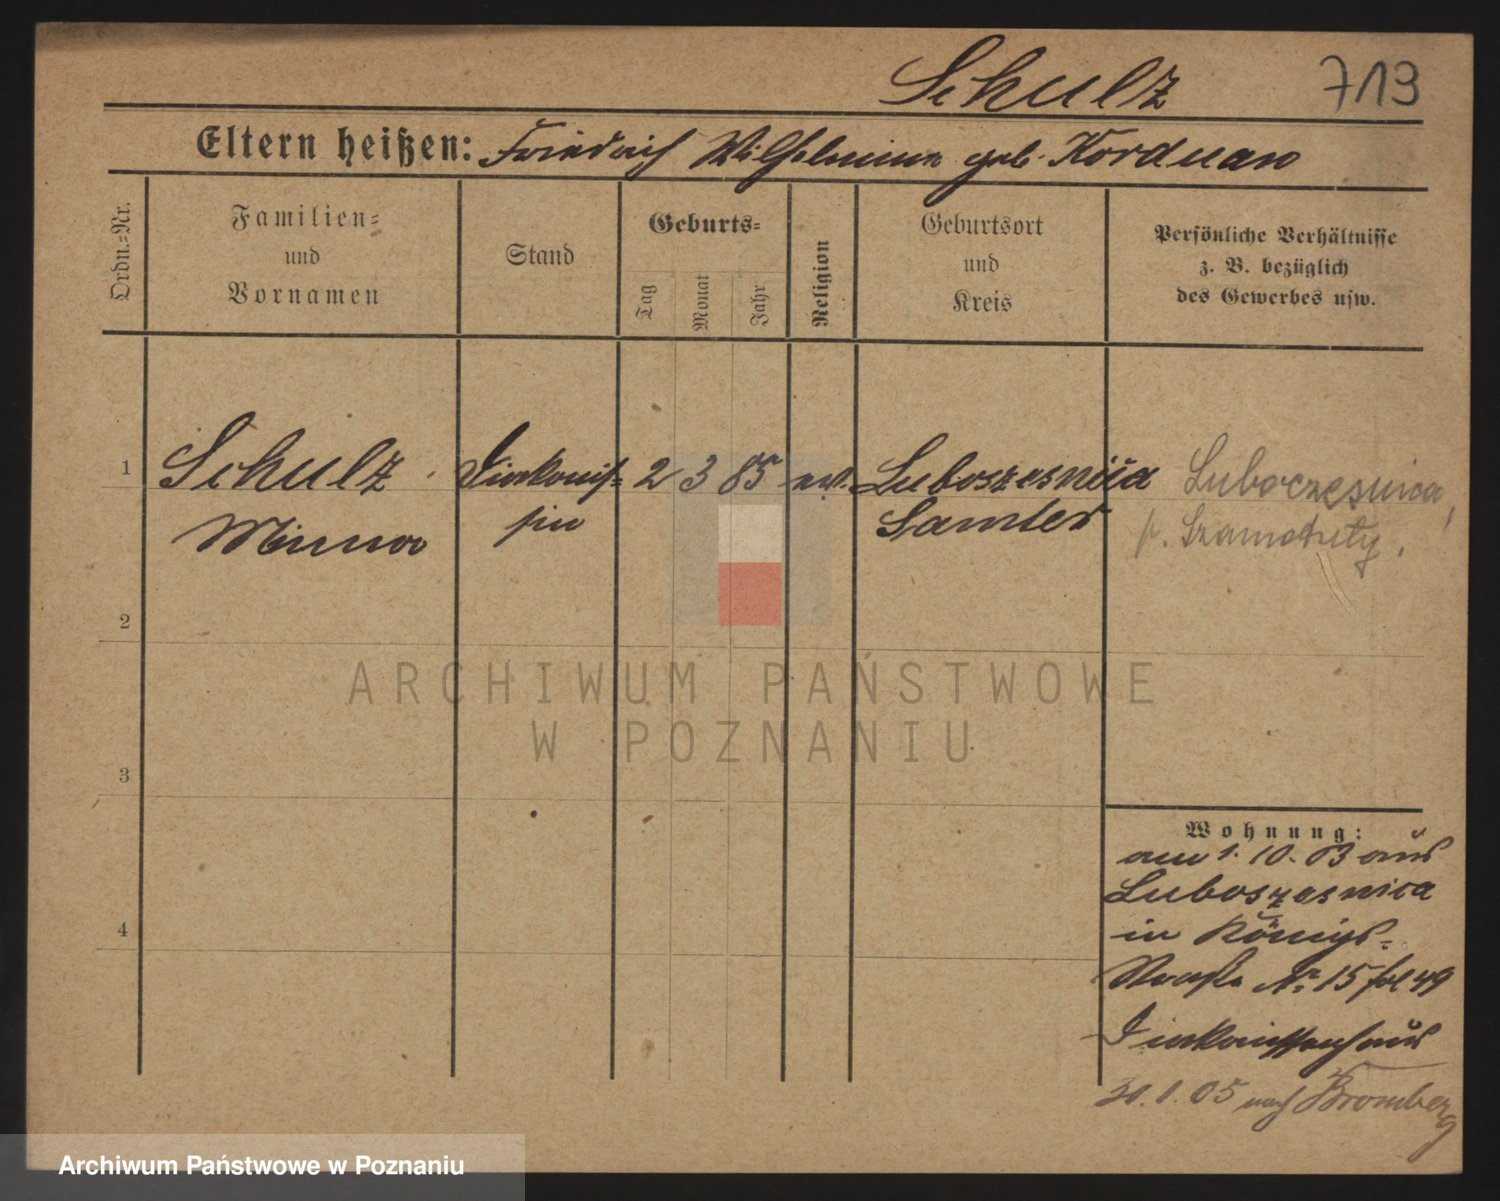 Schulz
713
Eltern heißen: Friedrich Wilhelmine geb. Korduan
Ordn.-Nr.
Familien-
und
Vornamen
Stand
Geburts-
Tag
Monat
Jahr
Religion
Geburtsort
und
Kreis
Persönliche Verhältnisse
z. B. bezüglich
des Gewerbes usw.
1
Schulz
Minna
Diakonis-
sin
2
3
85
ev.
Luboszesnica
Samter
Luboczesnica,
p. Szamotuły.
2
3
4
Wohnung:
am 1. 10. 03 aus
Luboszesnica
in Königs-
straße Nr. 15 fol 49
Diakonissenhaus
05 nach Bromberg
ARCHIWUM PAŃSTWOWE
W POZNANIU
Archiwum Państwowe w Poznaniu